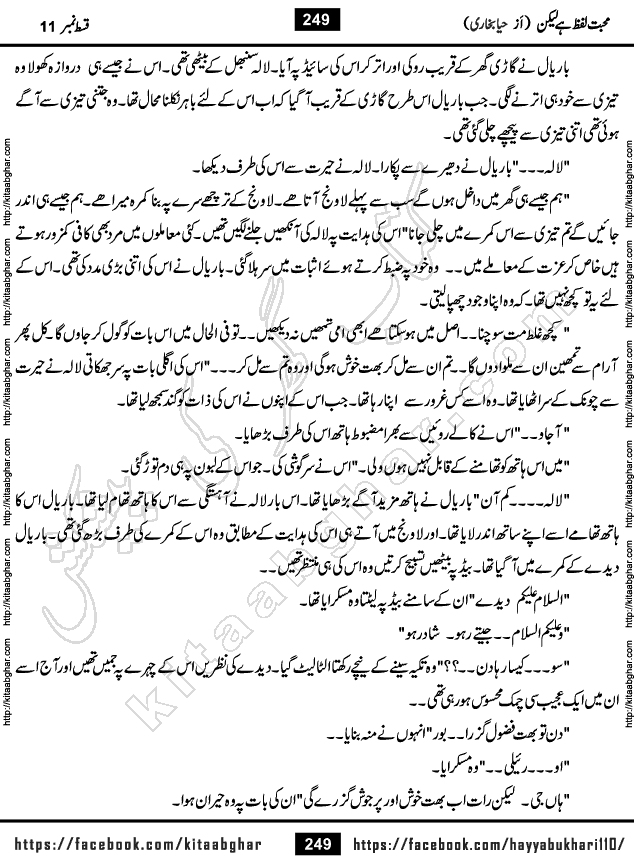 محبت لفظ ہے لیکن (از حیا بخاری) 249 قسط نمبر 11
باریال نے گاڑی گھر کے قریب روکی اور اتر کر اس کی سائیڈ پہ آیا۔ لالہ سنبھل کے بیٹھی تھی۔ اس نے جیسے ہی دروازہ کھولا وہ
تیزی سے خود ہی اترنے لگی۔ جب باریال اس طرح گاڑی کے قریب آگیا کہ اب اس کے لئے باہر نکلنا محال تھا۔ وہ جتنی تیزی سے آگے
ہوئی تھی اتنی تیزی سے پیچھے چلی گئی تھی۔
"لالہ۔۔۔" باریال نے دھیرے سے پکارا۔ لالہ نے حیرت سے اس کی طرف دیکھا۔
"ہم جیسے ہی گھر میں داخل ہوں گے سب سے پہلے لاونج آتا ھے۔ لاونج کے ترچھے سرے پہ بنا کمرہ میرا ھے۔ ہم جیسے ہی اندر
جائیں گے تم تیزی سے اس کمرے میں چلی جانا" اس کی ہدایت پہ لالہ کی آنکھیں جلنے لگیں تھیں۔ کئی معاملوں میں مرد بھی کافی کمزور ہوتے
ہیں خاص کر عزت کے معاملے میں۔۔ وہ خود پہ ضبط کرتے ہوئے اثبات میں سر ہلا گئی۔ باریال نے اس کی اتنی بڑی مدد کی تھی۔ اس کے
لئے یہ تو کچھ نہیں تھا۔ کہ وہ اپنا وجود چھپا لیتی۔
"کچھ غلط مت سوچنا۔۔ اصل میں ہو سکتا ھے ابھی امی تمھیں نہ دیکھیں۔۔ تو فی الحال میں اس بات کو گول کر جاوں گا۔ کل پھر
آرام سے تمھین ان سے ملوا دوں گا۔۔ تم ان سے مل کر بھت خوش ہو گی اور وہ تم سے مل کر۔۔۔" اس کی اگلی بات پہ سر جھکاتی لالہ نے حیرت
سے چونک کے سر اٹھایا تھا۔ وہ اسے کس غرور سے اپنا رہا تھا۔ جب اس کے اپنوں نے اس کی ذات کو گند سمجھ لیا تھا۔
"آجاو۔۔" اس نے کالے روئیں سے بھرا مضبوط ہاتھ اس کی طرف بڑھایا۔
"میں اس ہاتھ کو تھامنے کے قابل نہیں ہوں ولی۔" اس نے سرگوشی کی۔ جو اس کے لبون پہ ہی دم توڑ گئی۔
"لالہ۔۔۔۔ کم آن" باریال نے ہاتھ مزید آگے بڑھایا تھا۔ اس بار لالہ نے آہستگی سے اس کا ہاتھ تھام لیا تھا۔ باریال اس کا
ہاتھ تھامے اسے اپنے ساتھ اندر لایا تھا۔ اور لاونج میں آتے ہی اس کی ہدایت کے مطابق وہ اس کے کمرے کی طرف بڑھ گئی تھی۔ باریال
دیدے کے کمرے میں آگیا تھا۔ بیڈ پہ بیٹھیں تسبیح کرتیں وہ اس کی ہی منتظر تھیں۔۔
"السلام علیکم دیدے" ان کے سامنے بیڈ پہ لیٹتا وہ مسکرایا تھا۔
"وعلیکم السلام۔۔ جیتے رہو۔ شاد رہو"
"سو۔۔۔ کیسا رہا دن۔۔؟؟؟" وہ تکیہ سینے کے نیچے رکھتا الٹا لیٹ گیا۔ دیدے کی نظریں اس کے چہرے پہ جمیں تھیں اور آج اسے
ان میں ایک عجیب سی چمک محسوس ہو رہی تھی۔۔
"دن تو بھت فضول گزرا۔۔ بور" انہوں نے منہ بنایا۔۔
"او۔۔۔ رئیلی۔۔" وہ مسکرایا۔
"ہاں جی۔ لیکن رات اب بھت خوش اور پر جوش گزرے گی" ان کی بات پہ وہ حیران ہوا۔
https://facebook.com/kitaabghar 249 https://facebook.com/hayyabukhari110/
http://kitaabghar.com http://kitaabghar.com http://kitaabghar.com http://kitaabghar.com http://kitaabghar.com http://kitaabghar.com
http://kitaabghar.com http://kitaabghar.com http://kitaabghar.com http://kitaabghar.com http://kitaabghar.com http://kitaabghar.com
کتاب گھر کی پیشکش
kitaabghar.com